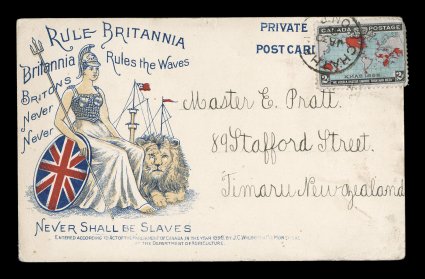 RULE BRITANNIA
Britannia Rules the Waves
BRITONS
Never
Never
NEVER SHALL BE SLAVES
ENTERED ACCORDING TO ACT OF THE PARLIAMENT OF CANADA IN THE YEAR 1898 BY J.C. WILSON
AT THE DEPARTMENT OF AGRICULTURE.
PRIVATE
POST CARD
CANADA POSTAGE
XMAS 1898
Master E. Pratt.
89 Stafford Street.
Timaru New Zealand